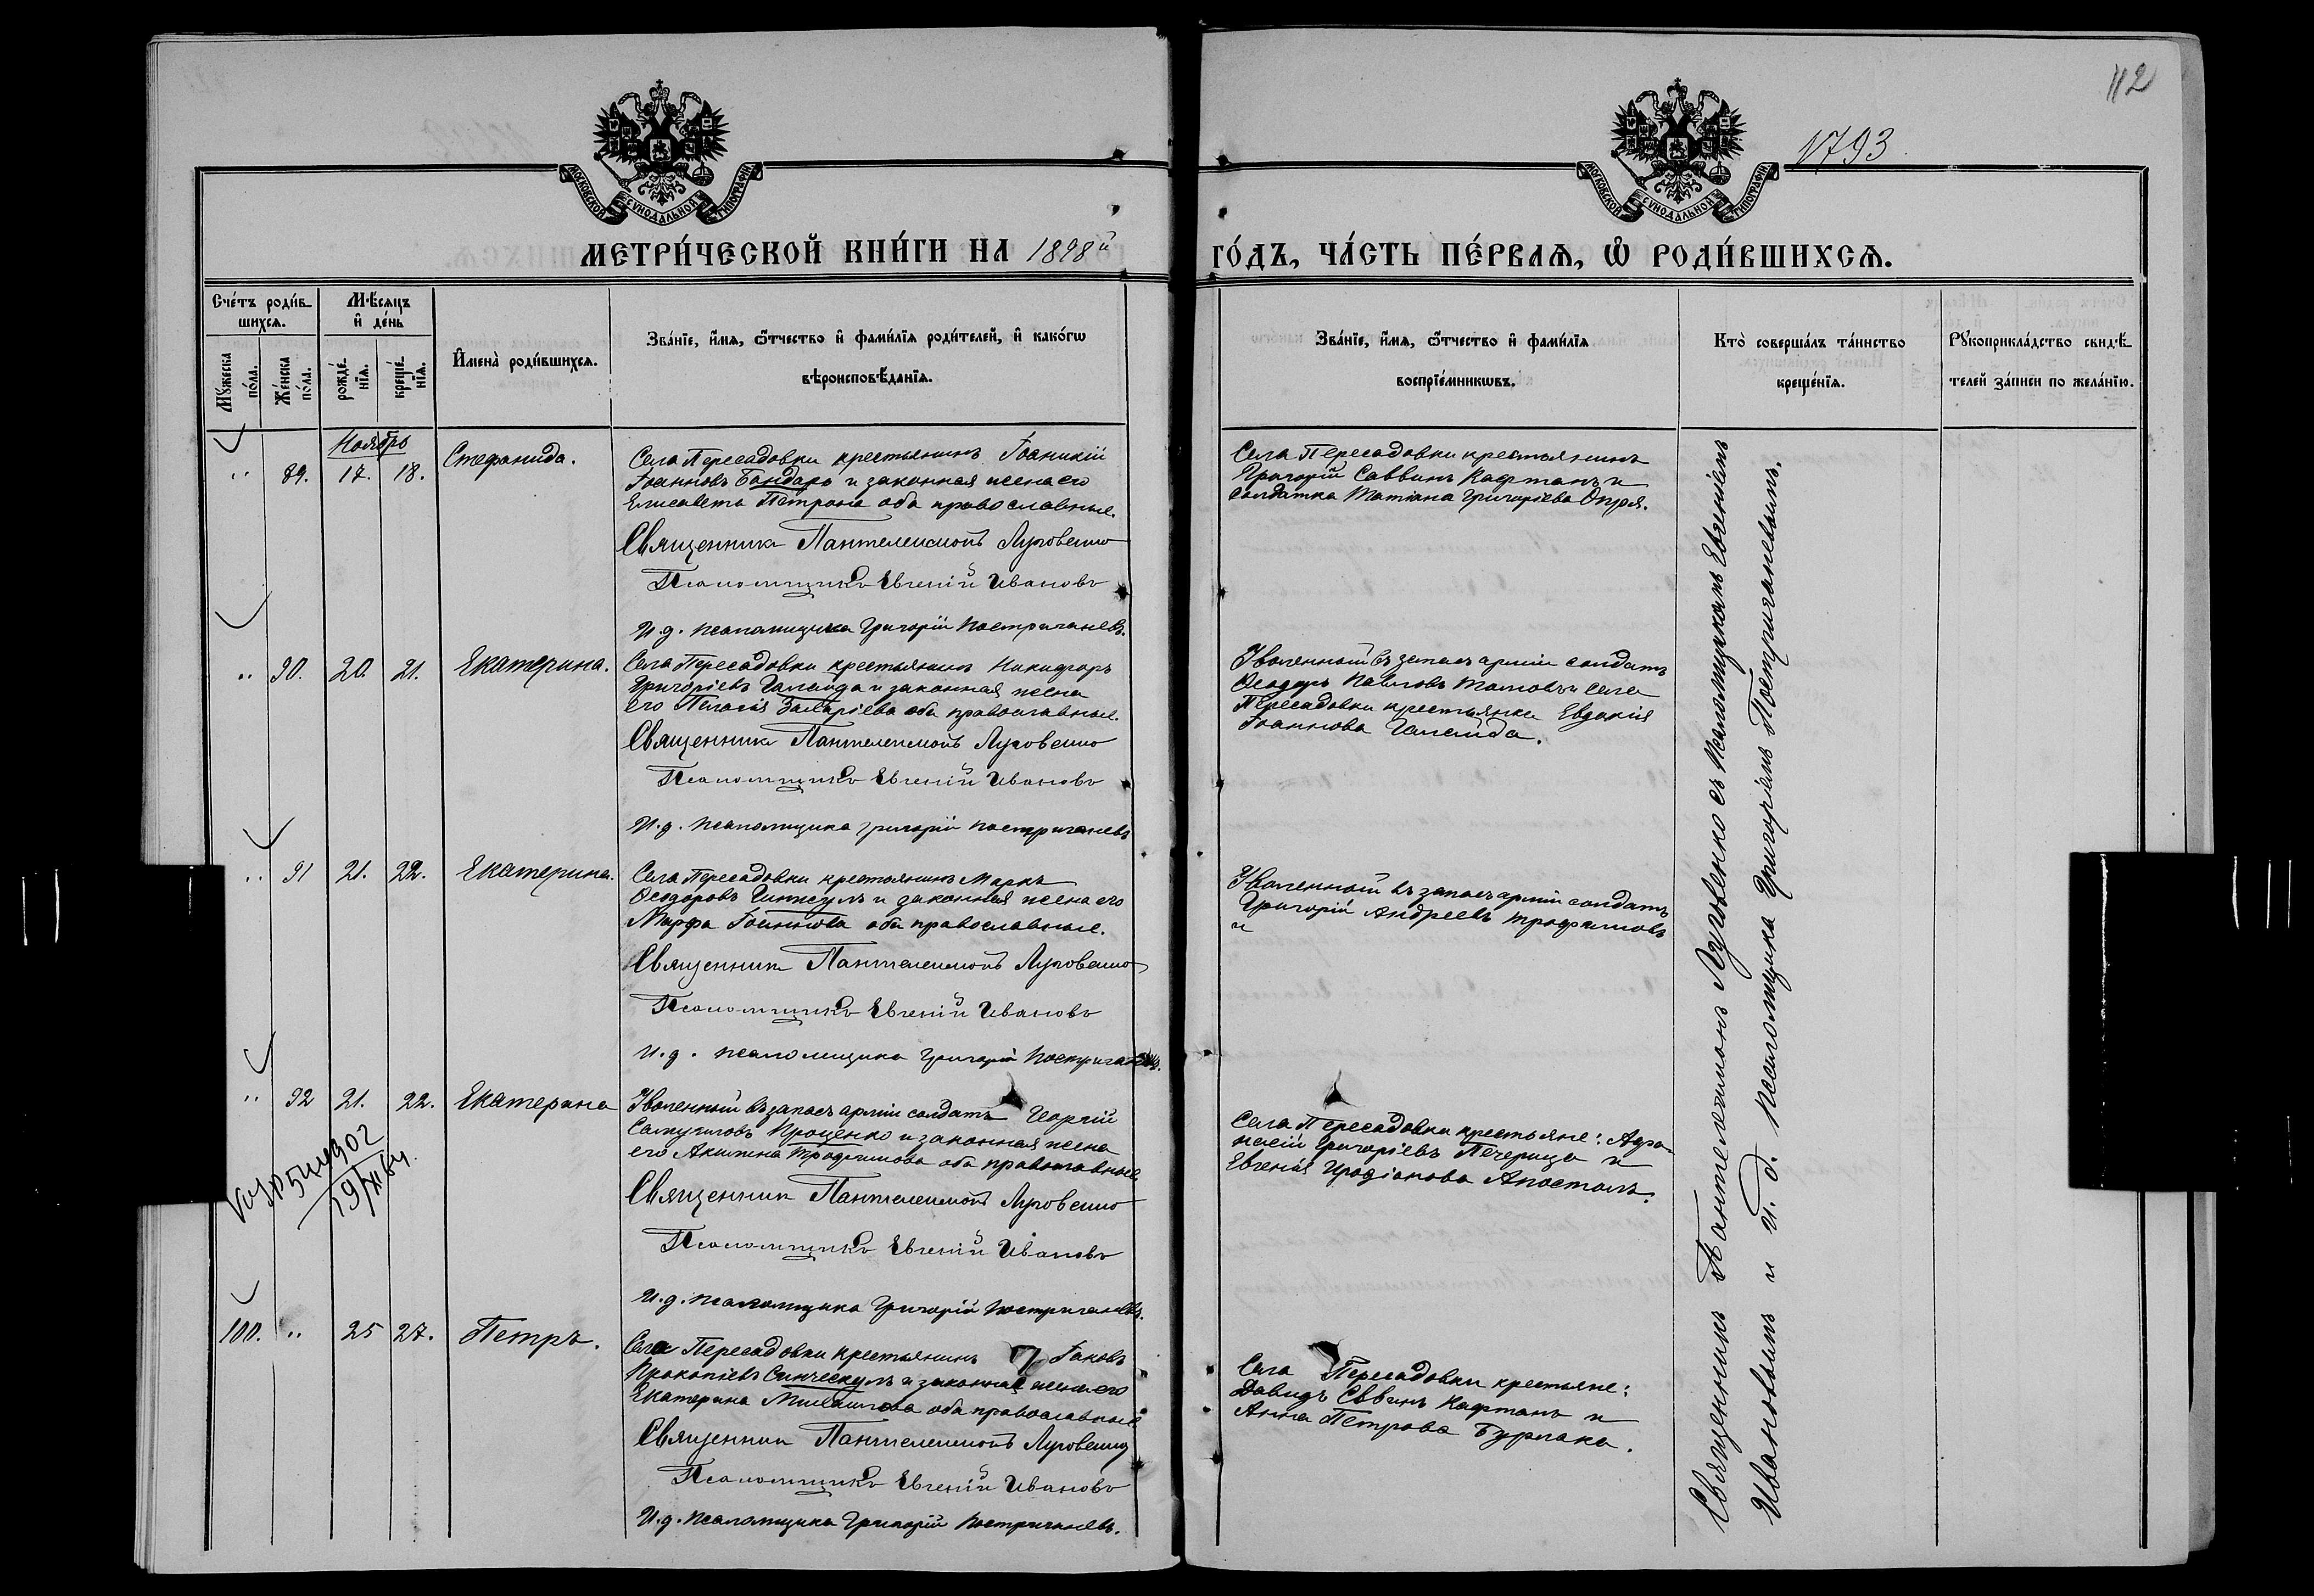 112
1793
МОСКОВСКОЙ СѴНОДАЛЬНОЙ ТИПОГРАФІИ
МОСКОВСКОЙ СѴНОДАЛЬНОЙ ТИПОГРАФІИ
МЕТРИ́ЧЕСКОЙ КНИ́ГИ НА 1898й
ГО́ДЪ, ЧА́СТЬ ПЕ́РВАѦ, Ѽ РОДИ́ВШИХСѦ.
Сче́тъ роди́в-
шихсѧ.
Мѣ́сѧцъ
и҆ де́нь
Мꙋ́жеска по́ла.
Же́нска по́ла.
рожде́нїѧ.
креще́нїѧ.
И҆мена̀ роди́вшихсѧ.
Зва́нїе, и҆́мѧ, ѻ҆́тчество и҆ фами́лїѧ роди́телей, и҆ како́гѡ
вѣроисповѣ́данїѧ.
Зва́нїе, и҆́мѧ, ѻ҆́тчество и҆ фами́лїѧ
воспрїе́мникѡвъ.
Кто̀ соверша́лъ та́инство
креще́нїѧ.
Рꙋкоприкла́дство свидѣ́-
телей за́писи по жела́нїю.
Ноябрь
" 89. 17. 18. Стефанида.
Села Пересадовки крестьянинъ Іоаникій
Іоанновъ Бондарь и законная жена его
Елисавета Петрова оба православные.
Священникъ Пантелеимонъ Луговенко
Псаломщикъ Евгеній Ивановъ
И.д. псаломщика Григорій Постригачевъ.
Села Пересадовки крестьянинъ
Григорій Саввинъ Кафтанъ и
солдатка Татіана Григоріева Опря.
" 90. 20. 21. Екатерина.
Села Пересадовки крестьянинъ Никифоръ
Григоріевъ Галайда и законная жена
его Пелагія Захаріева оба православные.
Священникъ Пантелеимонъ Луговенко
Псаломщикъ Евгеній Ивановъ
И.д. псаломщика Григорій Постригачевъ
Уволенный въ запасъ арміи солдатъ
Ѳеодоръ Павловъ Томовъ и села
Пересадовки крестьянка Евдокія
Іоаннова Галайда.
" 91 21. 22. Екатерина.
Села Пересадовки крестьянинъ Маркъ
Ѳеодоровъ и законная жена его
Марфа Іоаннова оба православные.
Священникъ Пантелеимонъ Луговенко
Псаломщикъ Евгеній Ивановъ
И.д. псаломщика Григорій Постригачевъ.
Уволенный въ запасъ арміи солдатъ
Григорій Андреевъ Трофимовъ
и
" 92 21. 22. Екатерина
Уволенный въ запасъ арміи солдатъ Георгій
Самуиловъ Проценко и законная жена
его Акилина Трофимова оба православные
Священникъ Пантелеимонъ Луговенко
Псаломщикъ Евгеній Ивановъ
И.д. псаломщика Григорій Постригачевъ.
Села Пересадовки крестьяне: Афа-
насій Григоріевъ Печерица и
Евгенія Иродіонова Апостолъ.
100. " 25 27. Петръ.
Села Пересадовки крестьянинъ Іаковъ
Прокопіевъ Синческулъ и законная жена его
Екатерина Михаилова оба православные
Священникъ Пантелеимонъ Луговенко
Псаломщикъ Евгеній Ивановъ
И.д. псаломщика Григорій Постригачевъ.
Села Пересадовки крестьяне:
Давидъ Саввинъ Кафтанъ и
Анна Петрова Бурлака.
Священникъ Пантелеимонъ Луговенко съ Псаломщикомъ Евгеніемъ
Ивановымъ и И.д. псаломщика Григоріемъ Постригачевымъ.